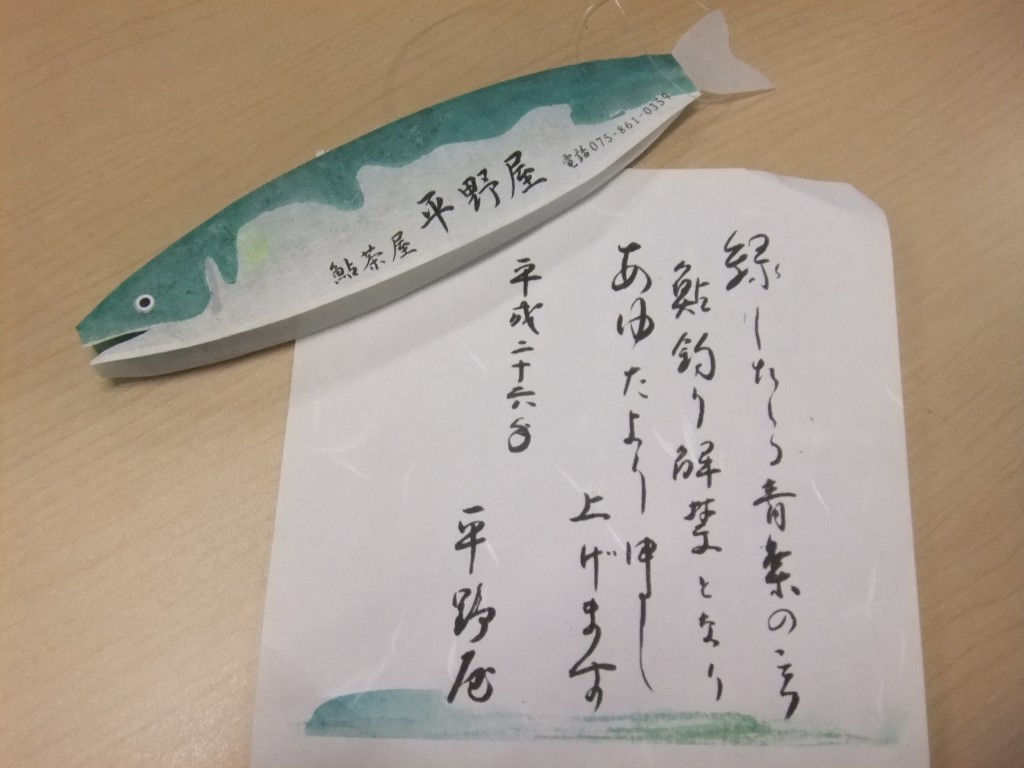 鮎茶屋 平野屋
電話075-861-0359
緑したたる青葉の
鮎釣り解禁となり
あゆたより申し
上げます
平成二十六年
平野屋